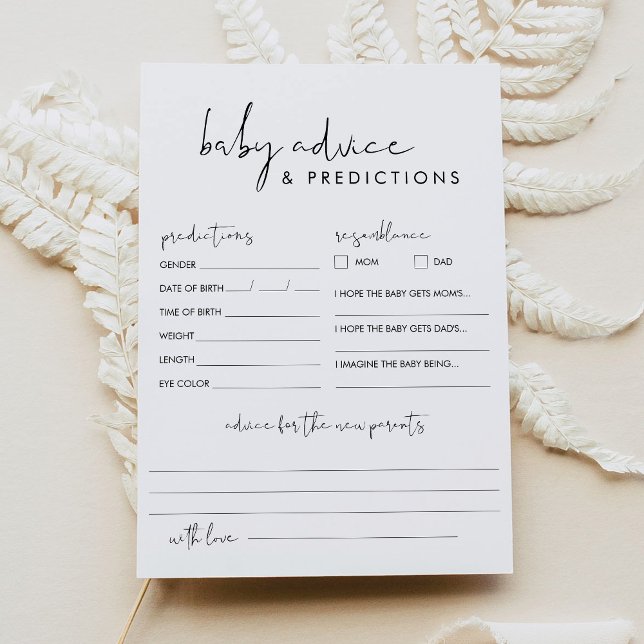 baby advice
& PREDICTIONS
predictions
GENDER
DATE OF BIRTH / /
TIME OF BIRTH
WEIGHT
LENGTH
EYE COLOR
resemblance
MOM DAD
I HOPE THE BABY GETS MOM'S...
I HOPE THE BABY GETS DAD'S...
I IMAGINE THE BABY BEING...
advice for the new parents
with love